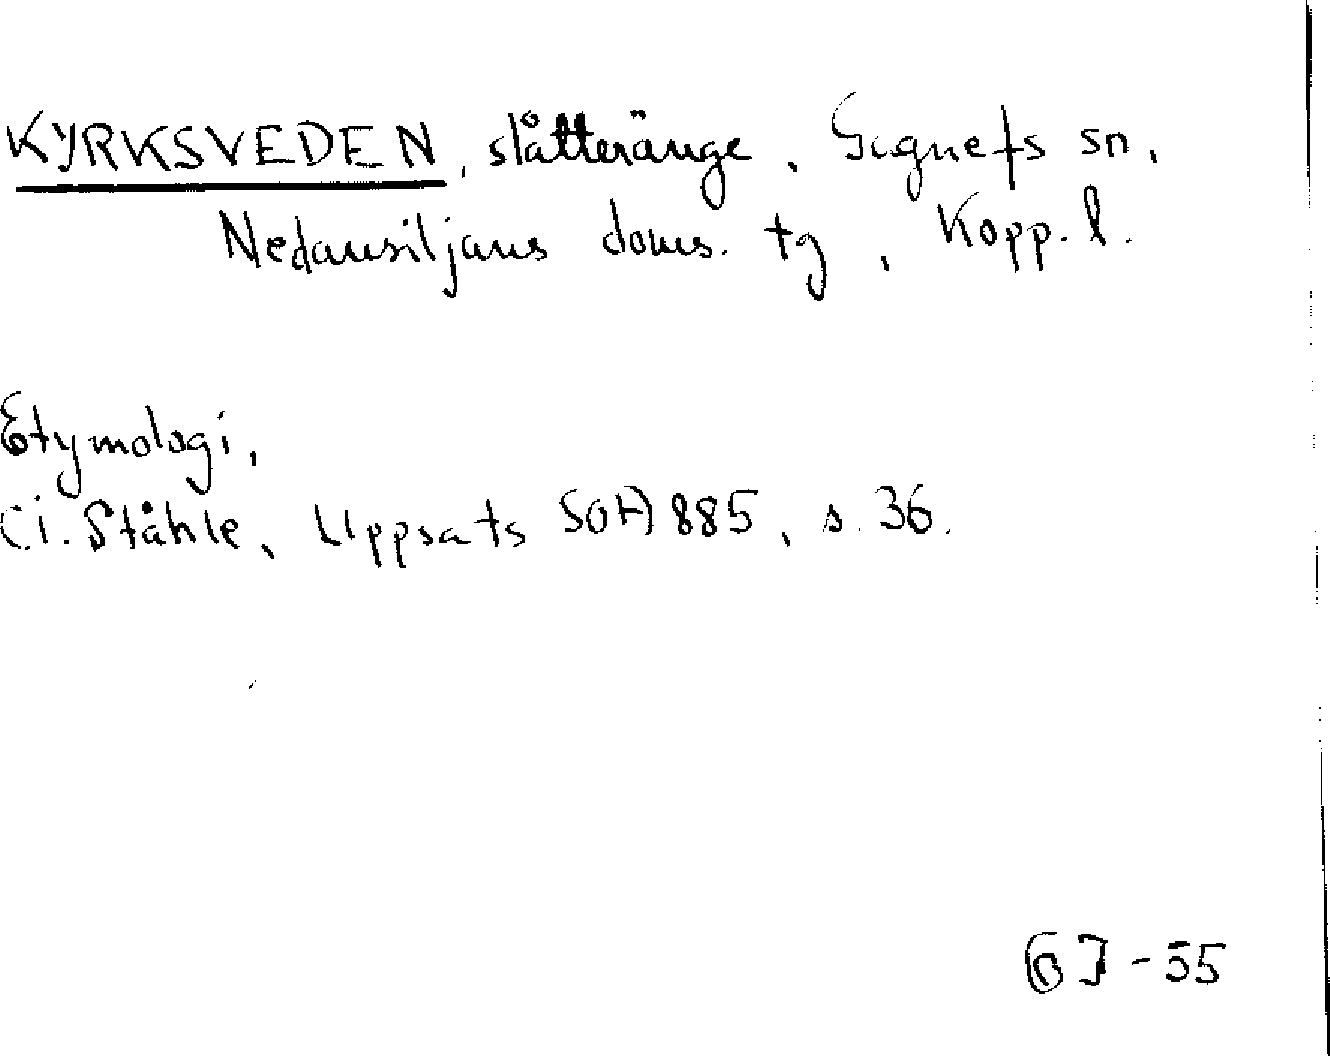 KYRKSVEDEN, slåtteränge, Gagnefs sn,
Nedansiljans doms. tg, Kopp. l.
Etymologi,
C.I. Ståhle, Uppsats SOH 885, s. 36.
-55